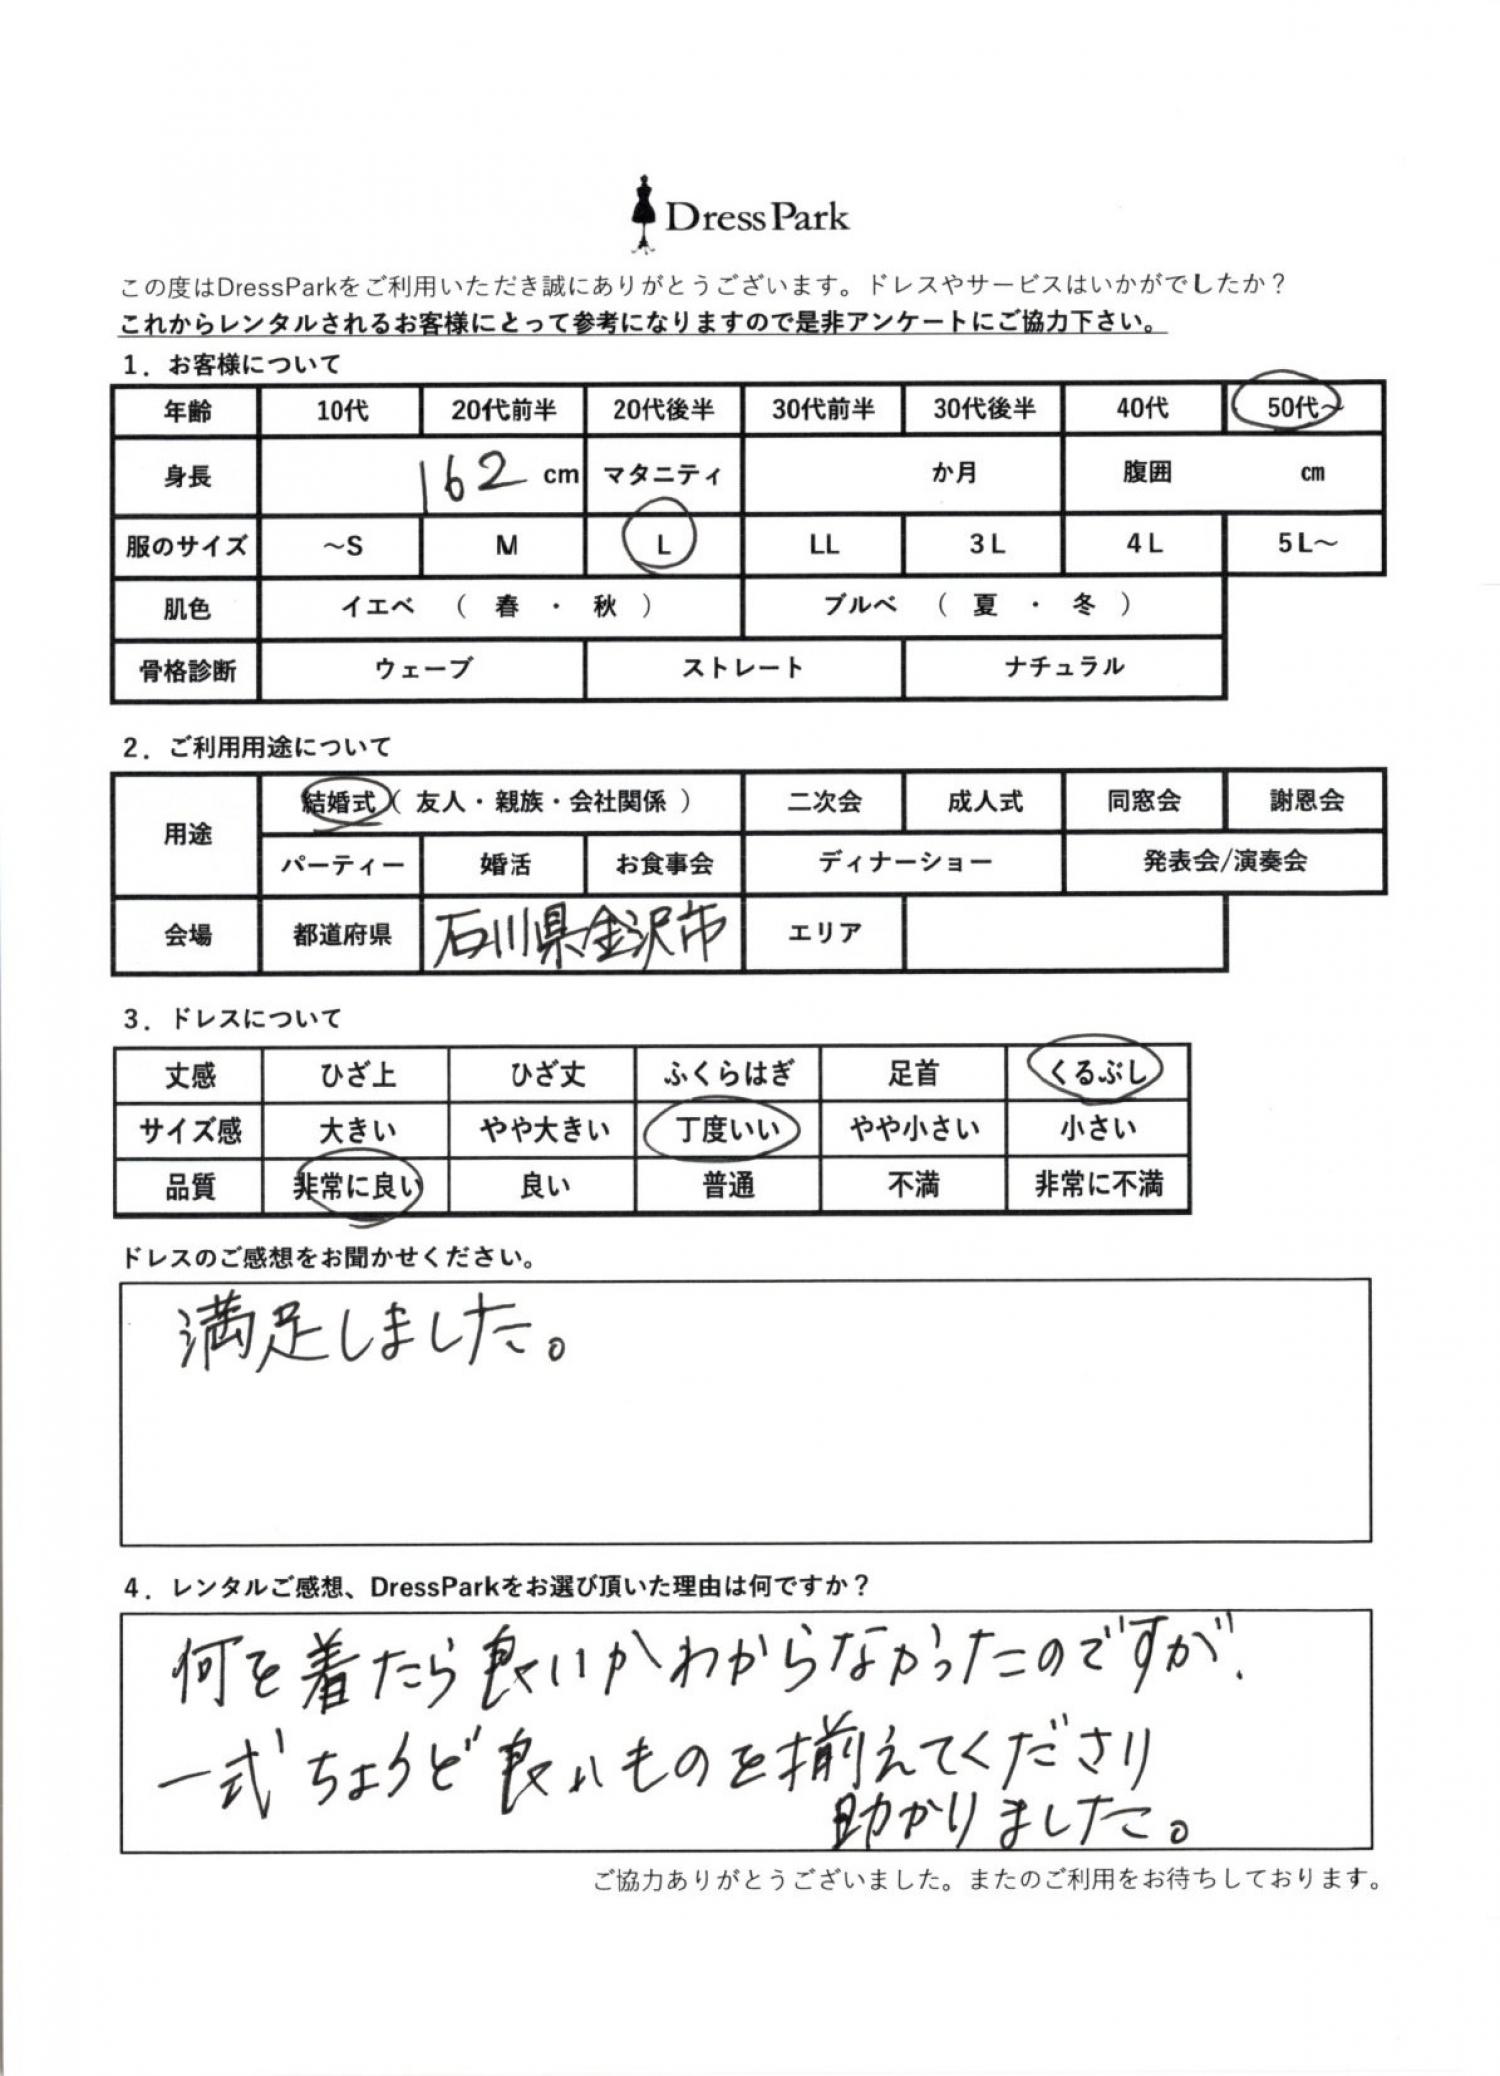 DressPark
この度はDressParkをご利用いただき誠にありがとうございます。ドレスやサービスはいかがでしたか？
これからレンタルされるお客様にとって参考になりますので是非アンケートにご協力下さい。
1．お客様について
年齢 10代 20代前半 20代後半 30代前半 30代後半 40代 50代～
身長 162 cm マタニティ か月 腹囲 cm
服のサイズ ～S M L LL 3L 4L 5L～
肌色 イエベ （ 春 ・ 秋 ） ブルベ （ 夏 ・ 冬 ）
骨格診断 ウェーブ ストレート ナチュラル
2．ご利用用途について
用途 結婚式（ 友人・親族・会社関係 ） 二次会 成人式 同窓会 謝恩会
パーティー 婚活 お食事会 ディナーショー 発表会/演奏会
会場 都道府県 石川県金沢市 エリア
3．ドレスについて
丈感 ひざ上 ひざ丈 ふくらはぎ 足首 くるぶし
サイズ感 大きい やや大きい 丁度いい やや小さい 小さい
品質 非常に良い 良い 普通 不満 非常に不満
ドレスのご感想をお聞かせください。
満足しました。
4．レンタルご感想、DressParkをお選び頂いた理由は何ですか？
何を着たら良いかわからなかったのですが、
一式ちょうど良いものを揃えてくださり
助かりました。
ご協力ありがとうございました。またのご利用をお待ちしております。